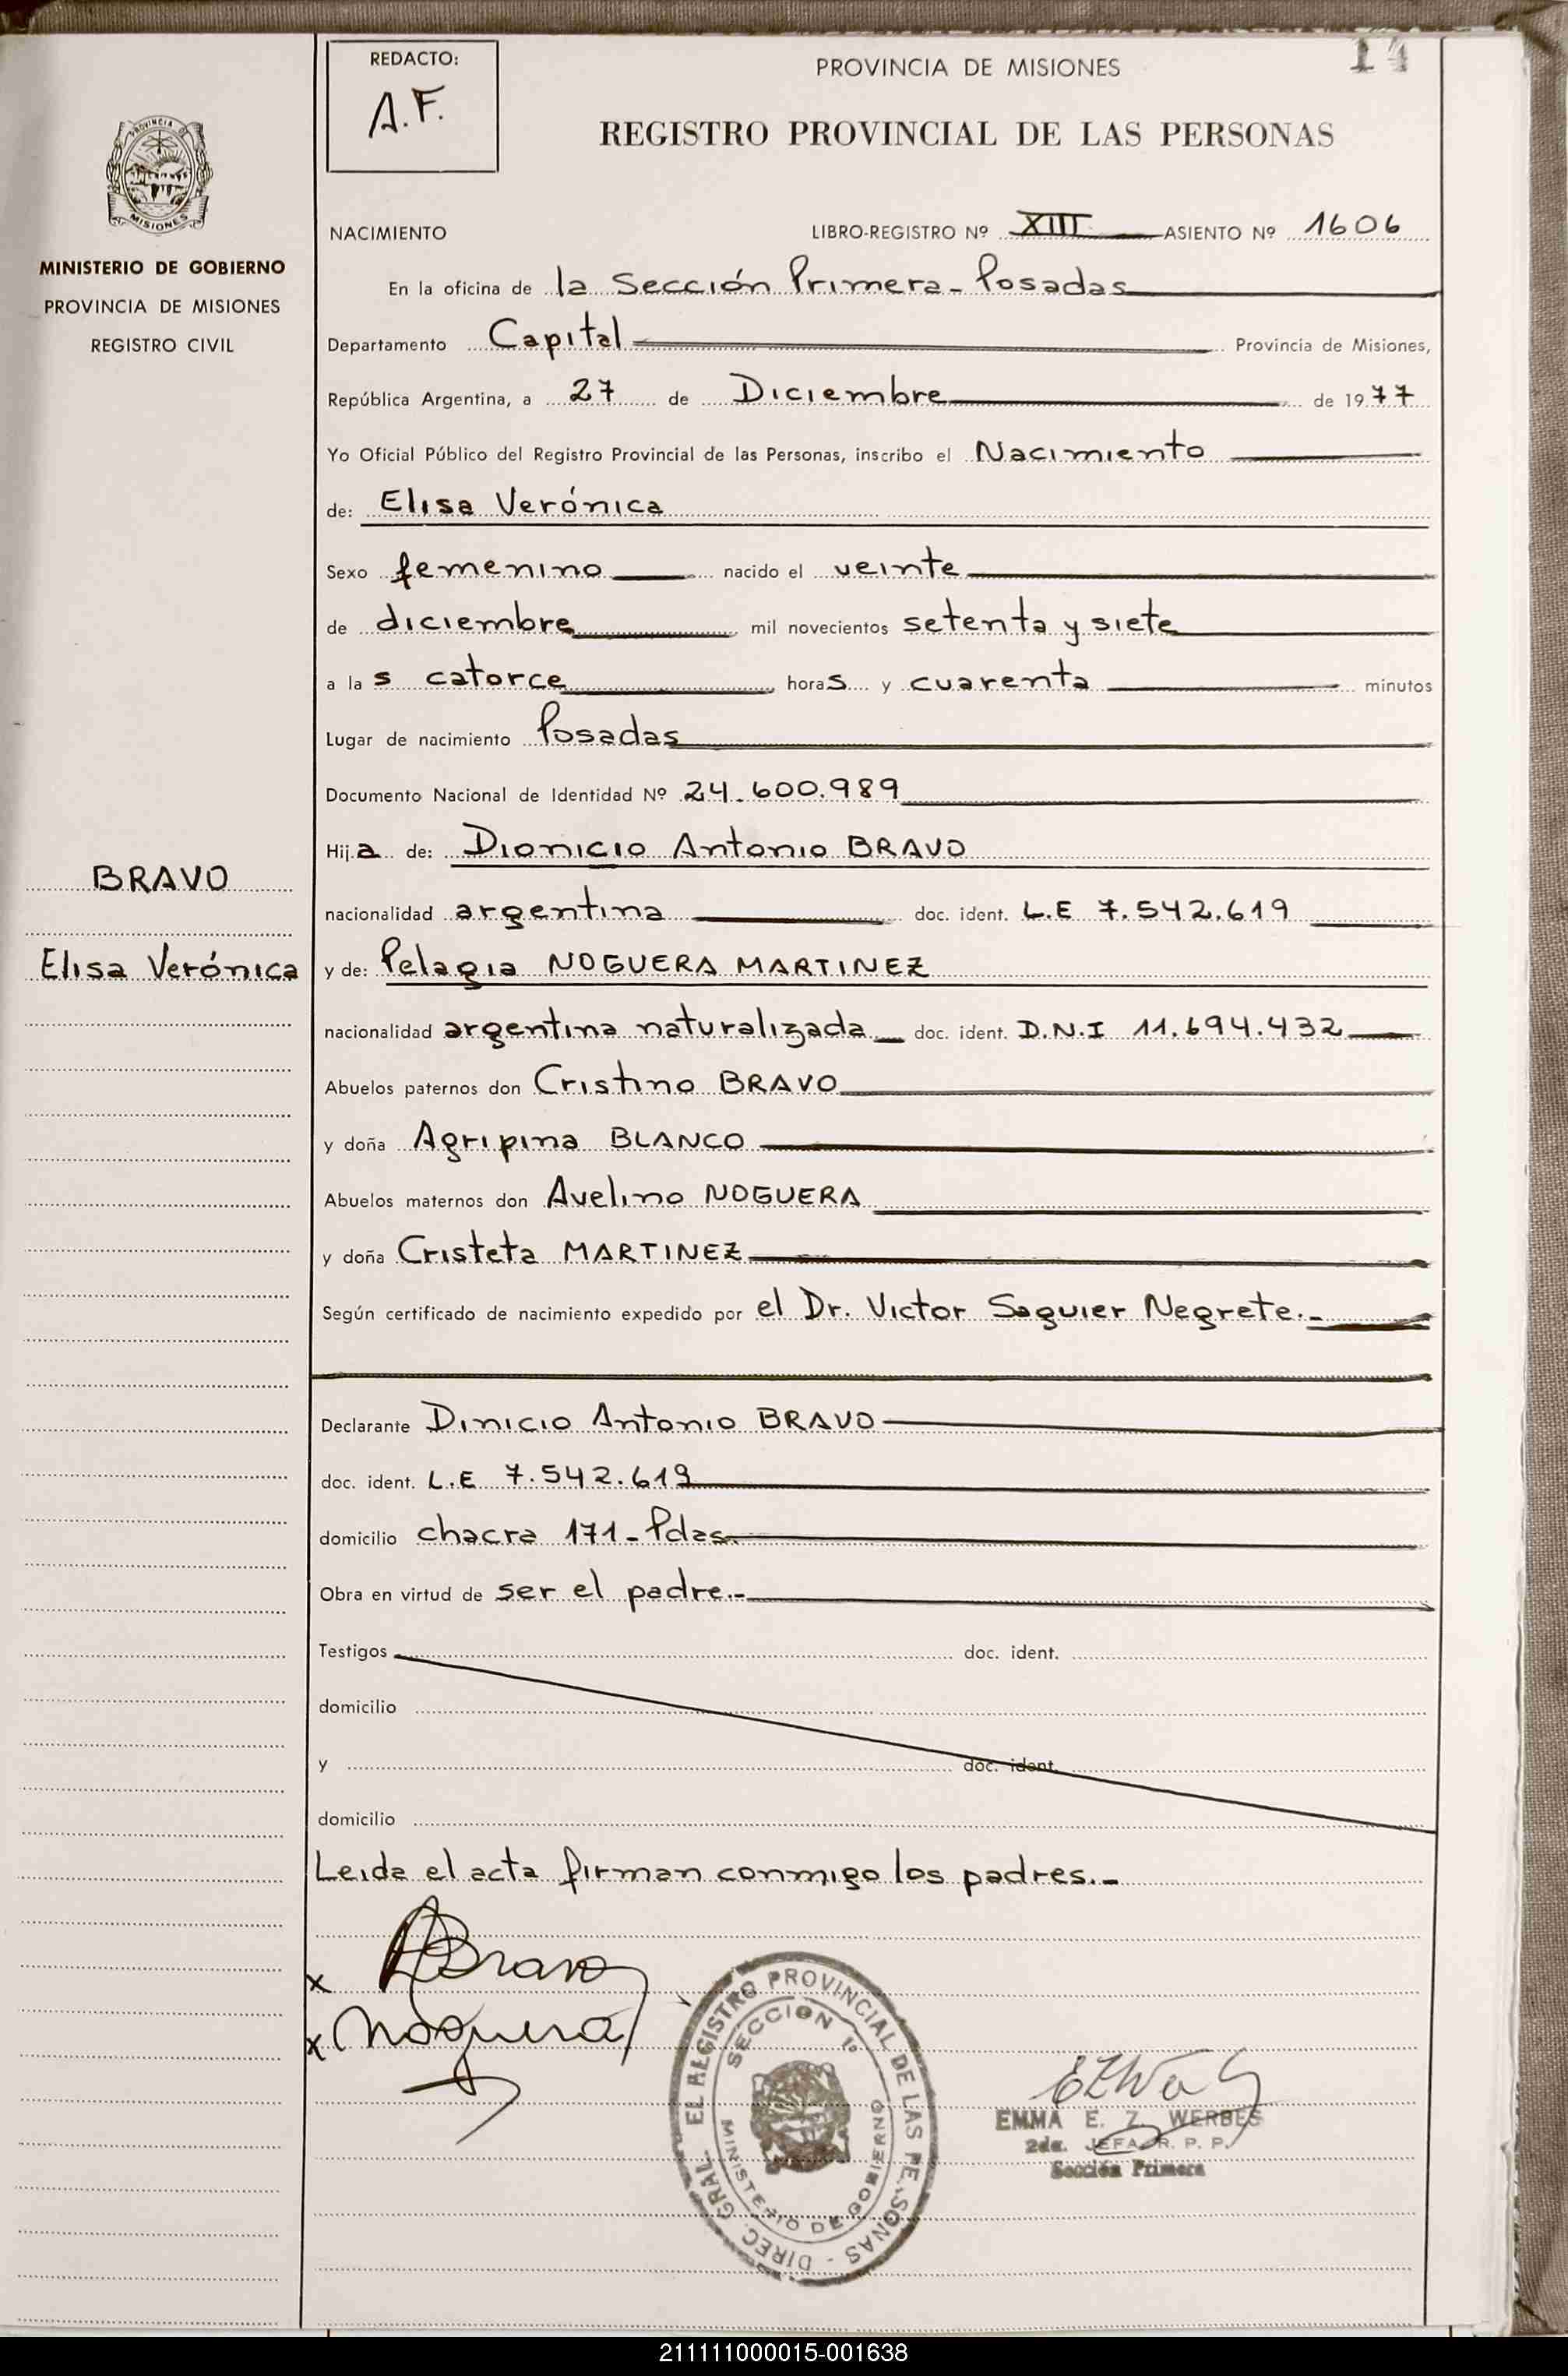 REDACTO:
A.F.
PROVINCIA DE MISIONES
14
REGISTRO PROVINCIAL DE LAS PERSONAS
PROVINCIA DE
MISIONES
MINISTERIO DE GOBIERNO
PROVINCIA DE MISIONES
REGISTRO CIVIL
NACIMIENTO LIBRO-REGISTRO Nº XIII ASIENTO Nº 1606
En la oficina de la Sección Primera - Posadas
Departamento Capital Provincia de Misiones,
República Argentina, a 27 de Diciembre de 1977
Yo Oficial Público del Registro Provincial de las Personas, inscribo el Nacimiento
de: Elisa Verónica
Sexo femenino nacido el veinte
de diciembre mil novecientos setenta y siete
a las catorce horas y cuarenta minutos
Lugar de nacimiento Posadas
Documento Nacional de Identidad Nº 24.600.989
Hija de: Dionicio Antonio BRAVO
BRAVO
nacionalidad argentina doc. ident. L.E 7.542.619
Elisa Verónica
y de: Pelagia NOGUERA MARTINEZ
nacionalidad argentina naturalizada doc. ident. D.N.I 11.694.432
Abuelos paternos don Cristino BRAVO
y doña Agripina BLANCO
Abuelos maternos don Avelino NOGUERA
y doña Cristeta MARTINEZ
Según certificado de nacimiento expedido por el Dr. Victor Saguier Negrete.-
Declarante Dinicio Antonio BRAVO
doc. ident. L.E 7.542.619
domicilio chacra 171 - Pdas.
Obra en virtud de ser el padre.-
Testigos doc. ident.
domicilio
y doc. ident.
domicilio
Leida el acta firman conmigo los padres.-
x Bravo
x Noguera
DIREC. GRAL. EL REGISTRO PROVINCIAL DE LAS PERSONAS -
SECCION 1º
MINISTERIO DE GOBIERNO
EMMA E. Z. WERBES
2da. JEFA R. P. P.
Sección Primera
211111000015-001638